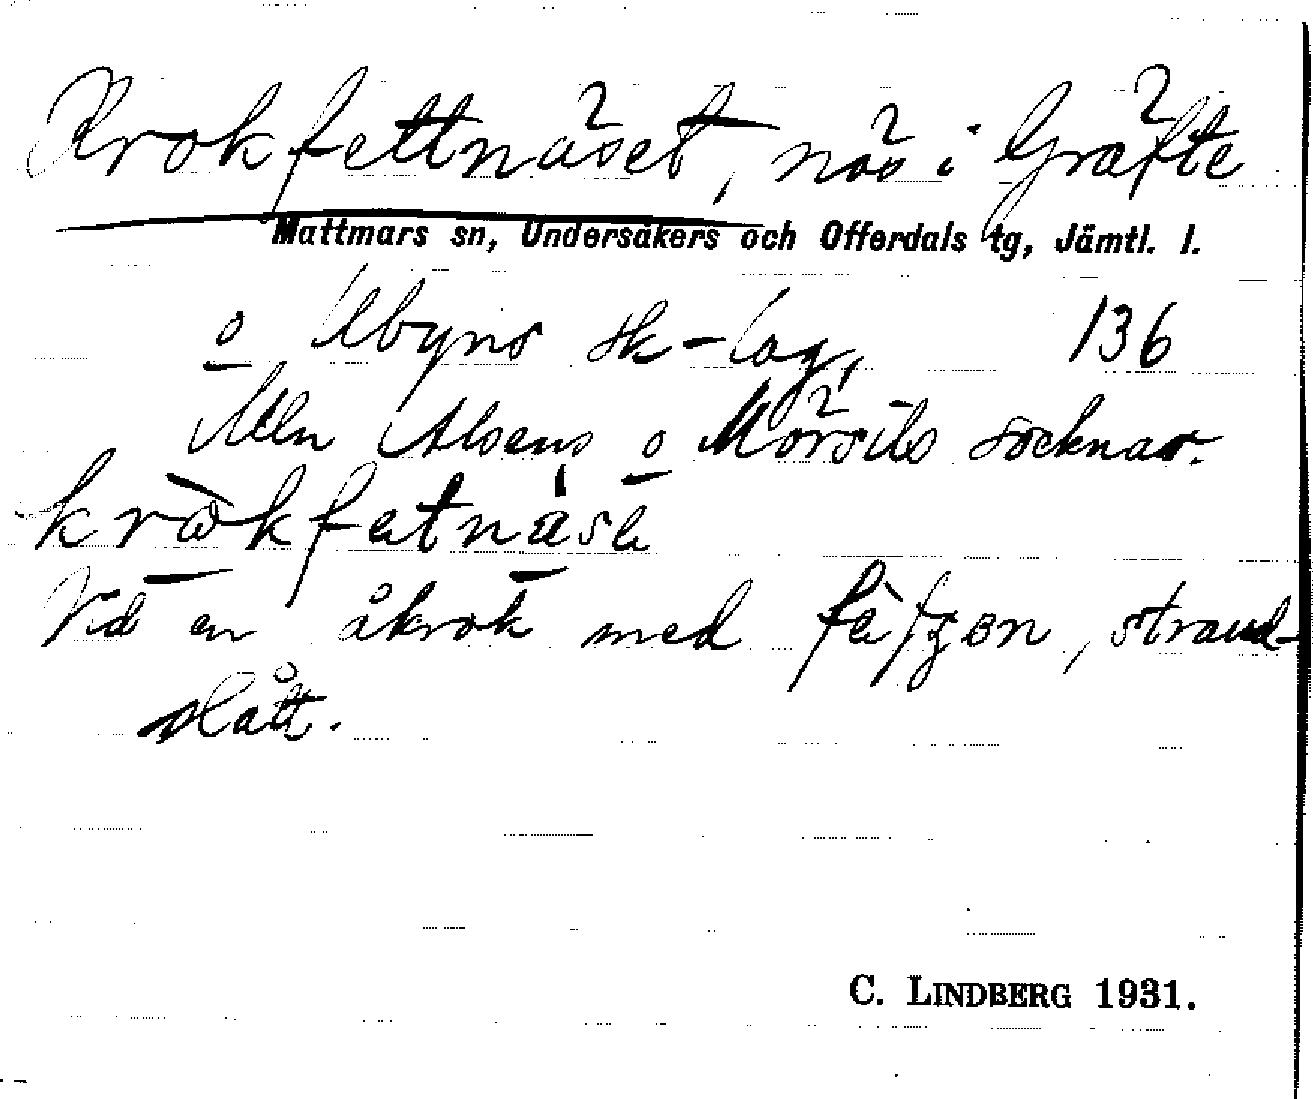 Krokfettnäset, näs i Gräfte
Mattmars sn, Undersåkers och Offerdals tg, Jämtl. l.
o Ubyns sk-lag, 136
Mln Alsens o Mörsils socknar.
kròkfetnäse
Vid en åkrok med strand-
slått.
C. LINDBERG 1931.